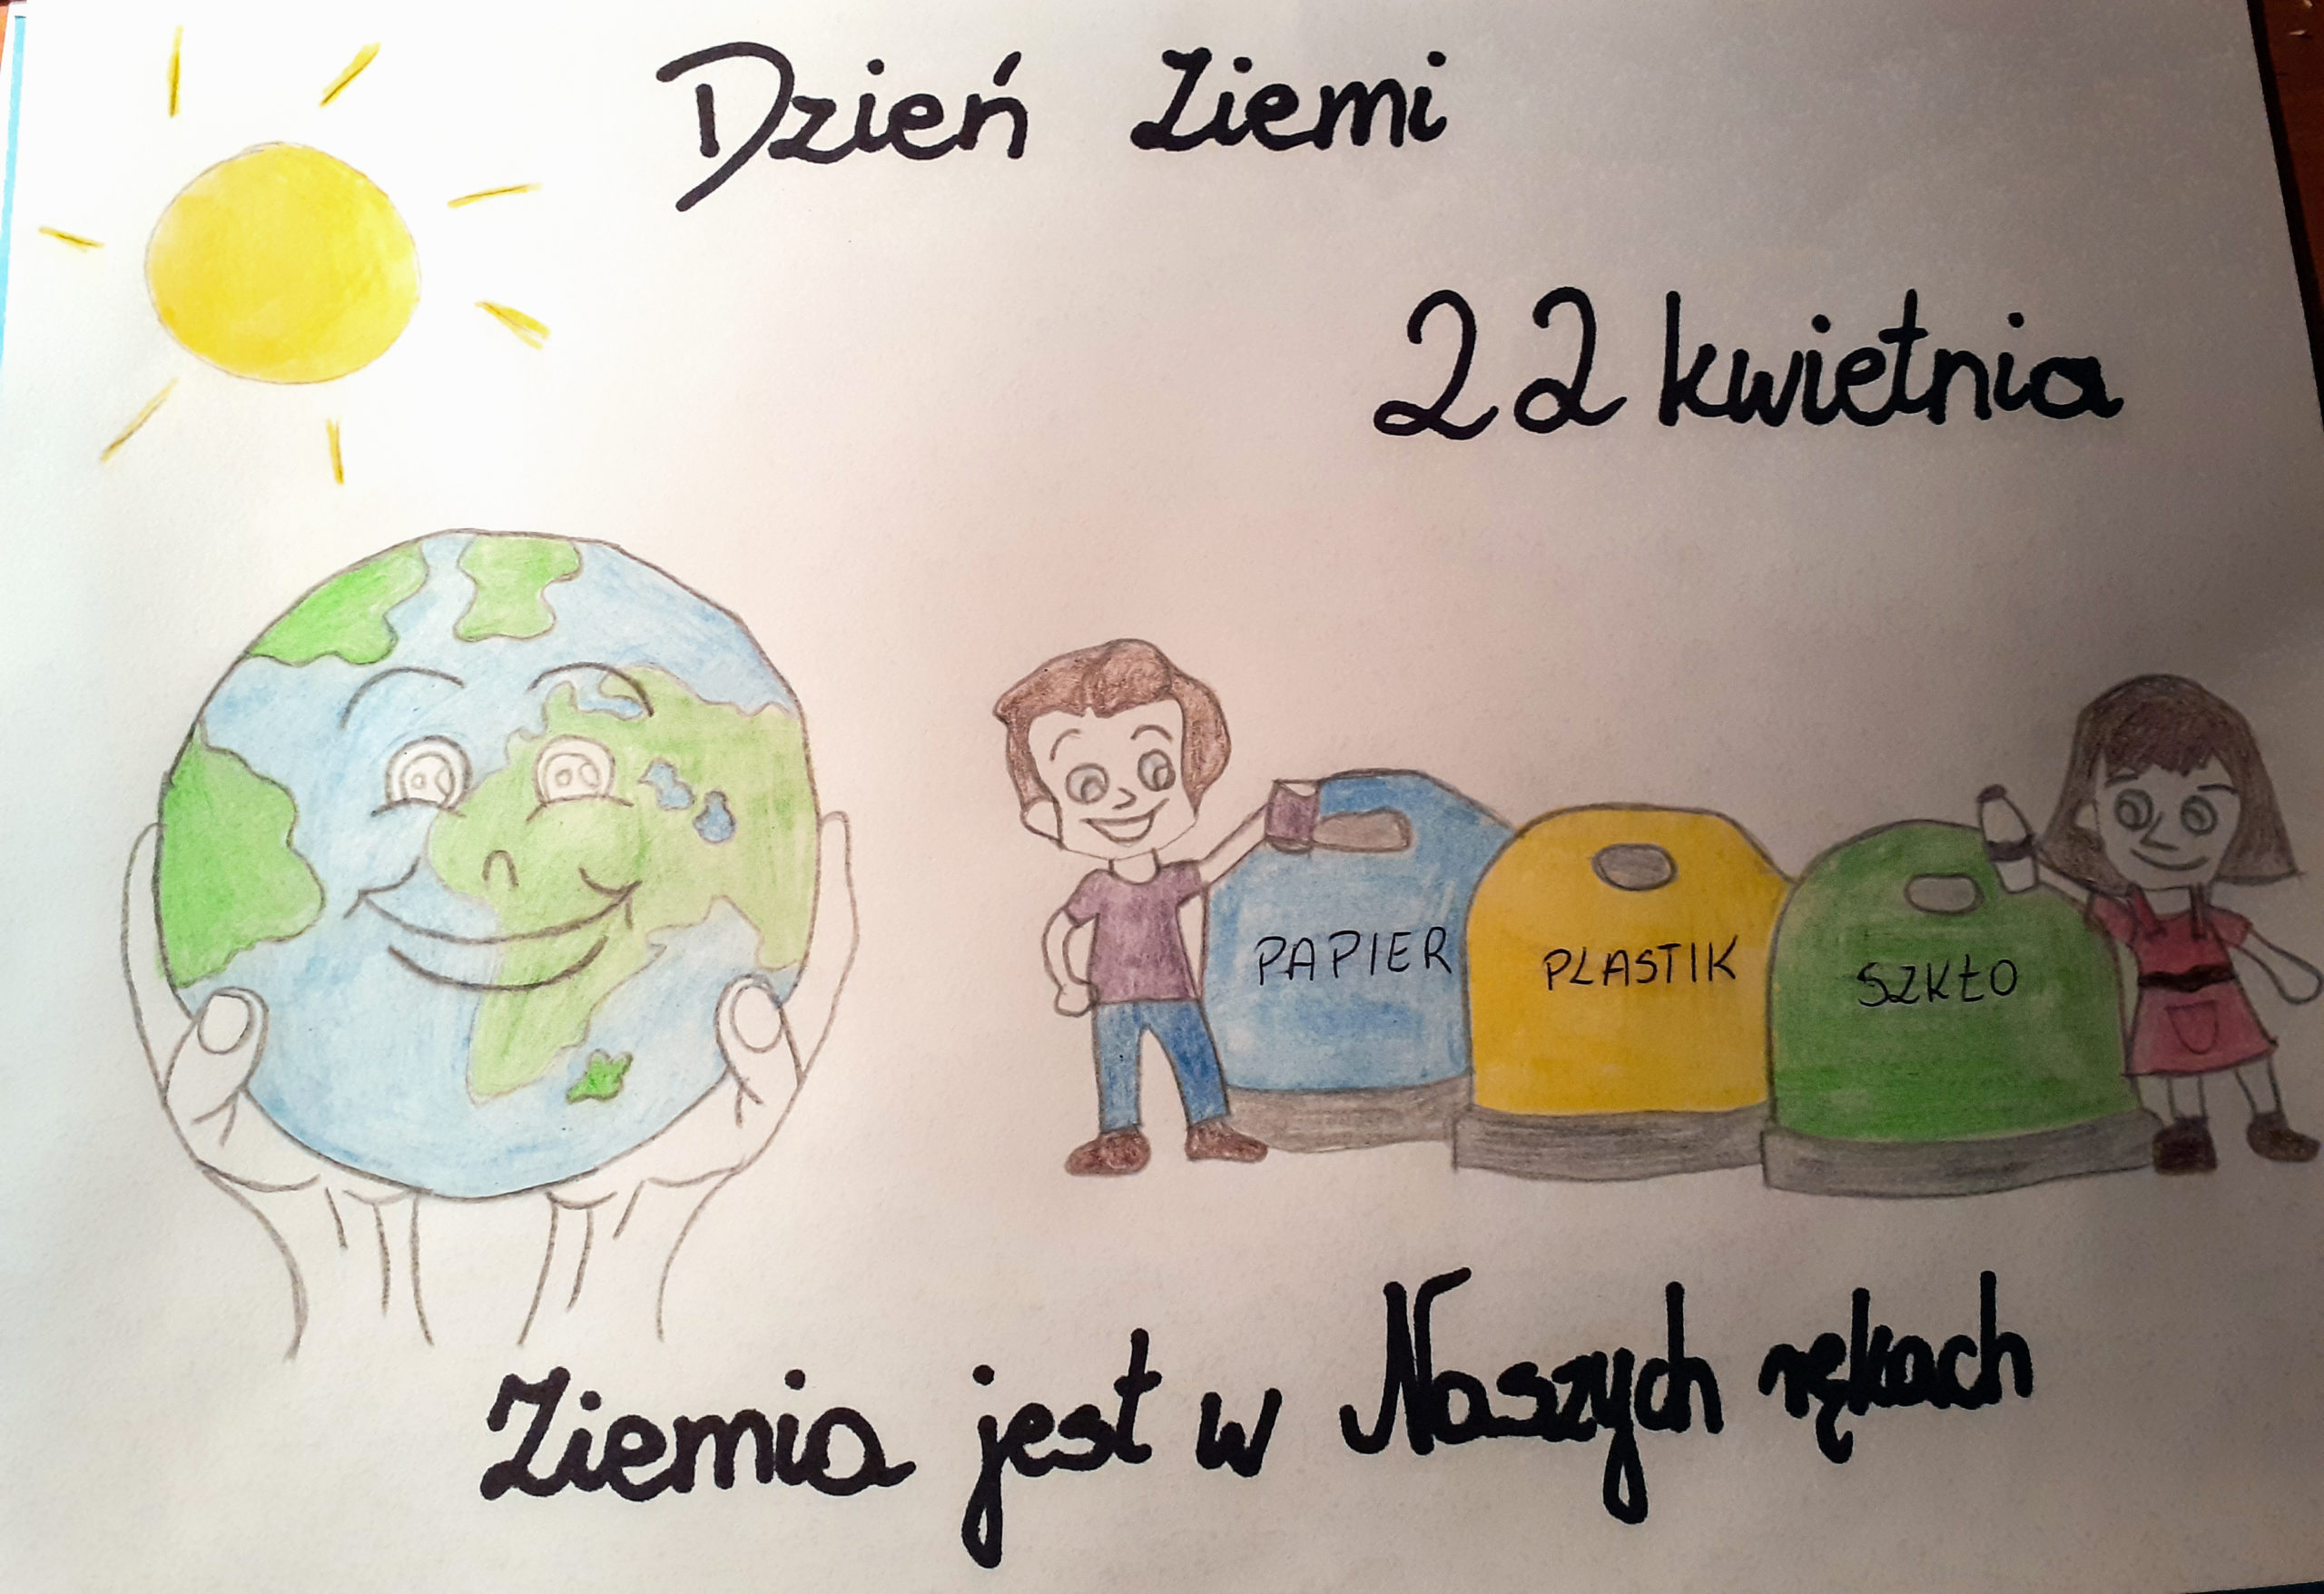 Dzień Ziemi
22 kwietnia
PAPIER
PLASTIK
SZKŁO
Ziemia jest w Naszych rękach